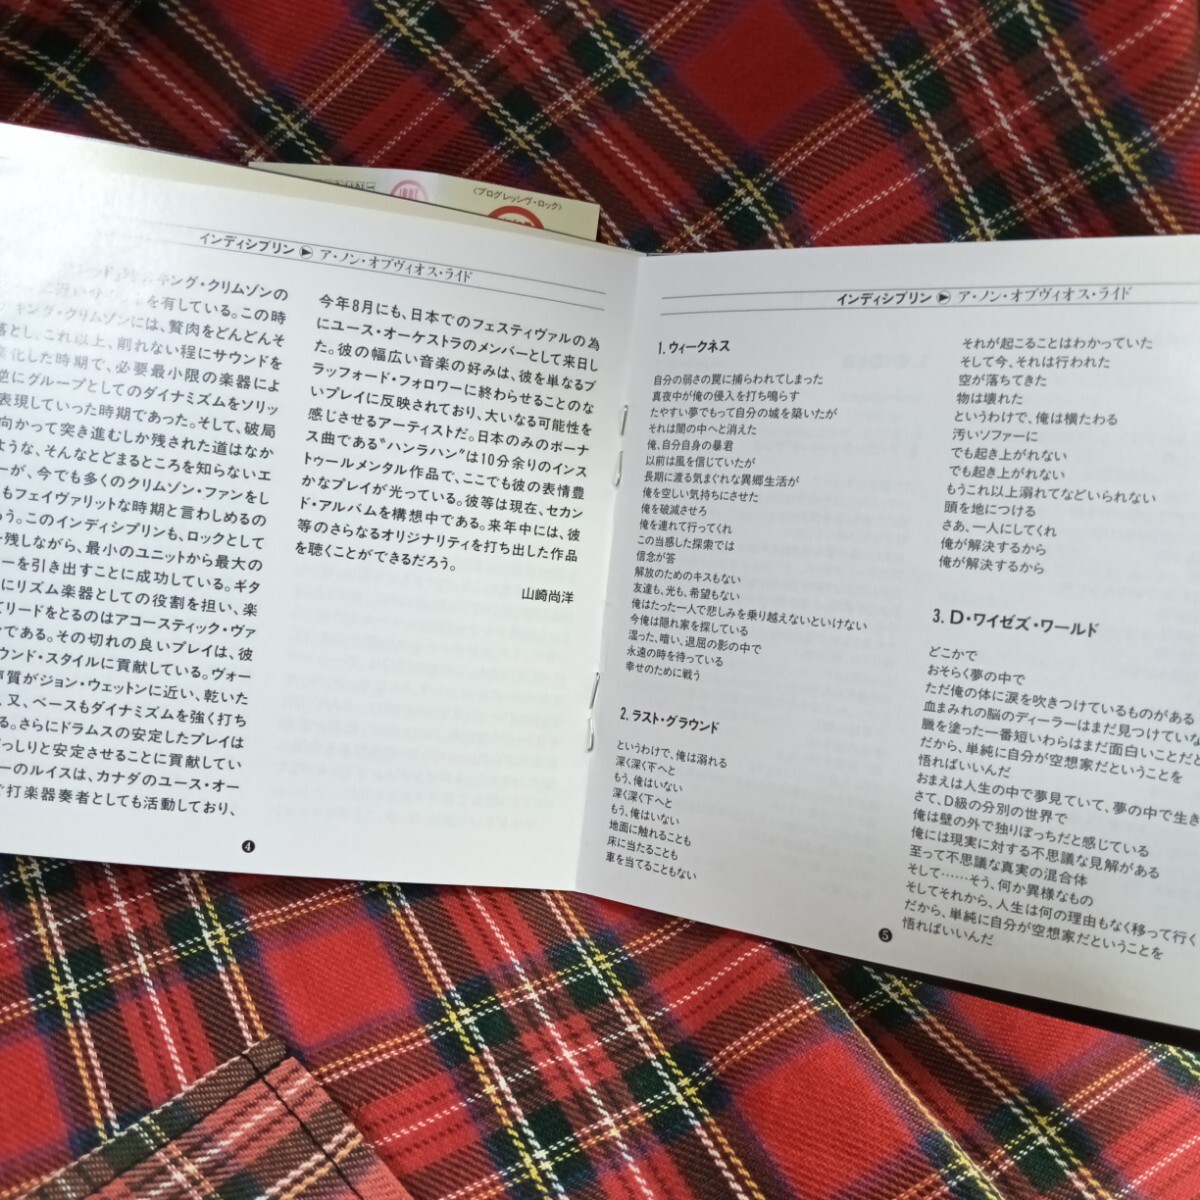 〈プログレッシヴ・ロック〉
インディシプリン▶ア・ノン・オブヴィオス・ライド
キング・クリムゾンの
を有している。この時
キング・クリムゾンには、贅肉をどんどんそ
落とし、これ以上、削れない程にサウンドを
化した時期で、必要最小限の楽器によ
逆にグループとしてのダイナミズムをソリッ
表現していった時期であった。そして、破局
向かって突き進むしか残された道はなか
ような、そんなとどまるところを知らないエ
ーが、今でも多くのクリムゾン・ファンをし
もフェイヴァリットな時期と言わしめるの
ろう。このインディシプリンも、ロックとして
残しながら、最小のユニットから最大の
ーを引き出すことに成功している。ギタ
にリズム楽器としての役割を担い、楽
てリードをとるのはアコースティック・ヴァ
である。その切れの良いプレイは、彼
ウンド・スタイルに貢献している。ヴォー
声質がジョン・ウェットンに近い、乾いた
、又、ベースもダイナミズムを強く打ち
る。さらにドラムスの安定したプレイは
っしりと安定させることに貢献してい
ーのルイスは、カナダのユース・オー
打楽器奏者としても活動しており、
今年8月にも、日本でのフェスティヴァルの為
にユース・オーケストラのメンバーとして来日し
た。彼の幅広い音楽の好みは、彼を単なるブ
ラッフォード・フォロワーに終わらせることのな
いプレイに反映されており、大いなる可能性を
感じさせるアーティストだ。日本のみのボーナ
ス曲である“ハンラハン”は10分余りのインス
トゥールメンタル作品で、ここでも彼の表情豊
かなプレイが光っている。彼等は現在、セカン
ド・アルバムを構想中である。来年中には、彼
等のさらなるオリジナリティを打ち出した作品
を聴くことができるだろう。
山崎尚洋
4
インディシプリン▶ア・ノン・オブヴィオス・ライド
1. ウィークネス
自分の弱さの罠に捕らわれてしまった
真夜中が俺の侵入を打ち鳴らす
たやすい夢でもって自分の城を築いたが
それは闇の中へと消えた
俺、自分自身の暴君
以前は風を信じていたが
長期に渡る気まぐれな異郷生活が
俺を空しい気持ちにさせた
俺を破滅させろ
俺を連れて行ってくれ
この当惑した探索では
信念が答
解放のためのキスもない
友達も、光も、希望もない
俺はたった一人で悲しみを乗り越えないといけない
今俺は隠れ家を探している
湿った、暗い、退屈の影の中で
永遠の時を待っている
幸せのために戦う
2. ラスト・グラウンド
というわけで、俺は溺れる
深く深く下へと
もう、俺はいない
深く深く下へと
もう、俺はいない
地面に触れることも
床に当たることも
車を当てることもない
それが起こることはわかっていた
そして今、それは行われた
空が落ちてきた
物は壊れた
というわけで、俺は横たわる
汚いソファーに
でも起き上がれない
でも起き上がれない
もうこれ以上溺れてなどいられない
頭を地につける
さあ、一人にしてくれ
俺が解決するから
俺が解決するから
3. D・ワイゼズ・ワールド
どこかで
おそらく夢の中で
ただ俺の体に涙を吹きつけているものがある
血まみれの脳のディーラーはまだ見つけていな
臓を塗った一番短いわらはまだ面白いことだと
だから、単純に自分が空想家だということを
悟ればいいんだ
おまえは人生の中で夢見ていて、夢の中で生き
さて、D級の分別の世界で
俺は壁の外で独りぼっちだと感じている
俺には現実に対する不思議な見解がある
至って不思議な真実の混合体
そして……そう、何か異様なもの
そしてそれから、人生は何の理由もなく移って行く
だから、単純に自分が空想家だということを
悟ればいいんだ
5